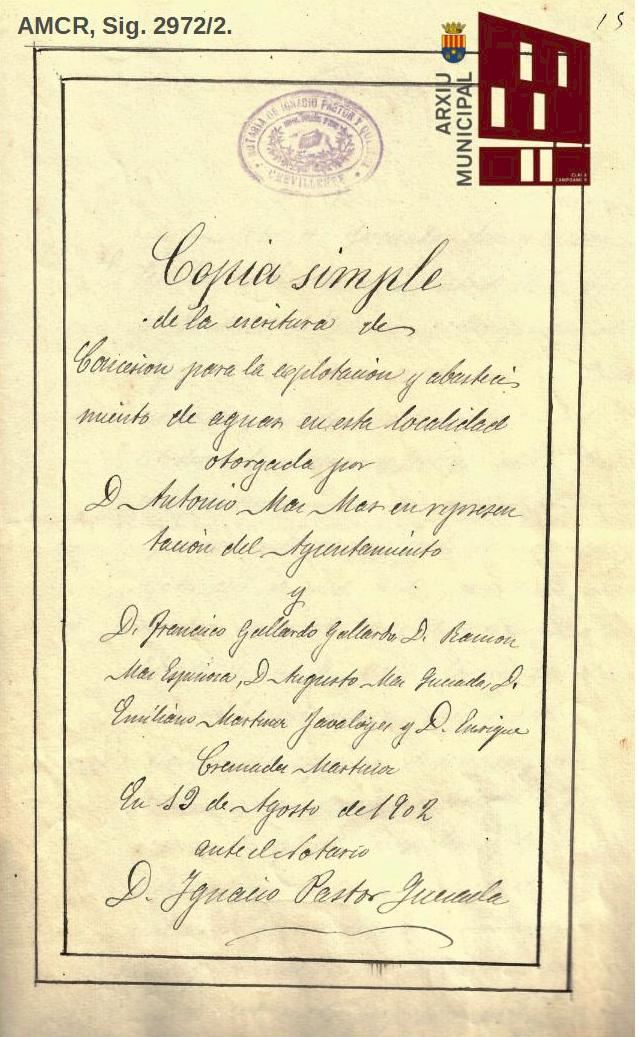 AMCR, Sig. 2972/2.
15
ARXIU
MUNICIPAL
CLARA
CAMPOAMOR
NOTARIA DE IGNACIO PASTOR Y
CREVILLENTE
Copia simple
de la escritura de
Concesion para la explotación y abasteci
miento de aguas en esta localidad
otorgada por
D Antonio Mas Mas en represen
tación del Ayuntamiento
y
D. Francisco Gallardo Gallardo D. Ramon
Mas Espinosa, D Augusto Mas Quesada, D.
Emiliano Martinez Javaloyes y D. Enrique
Cremades Martinez
En 19 de Agosto de 1902
ante el Notario
D. Ignacio Pastor Quesada